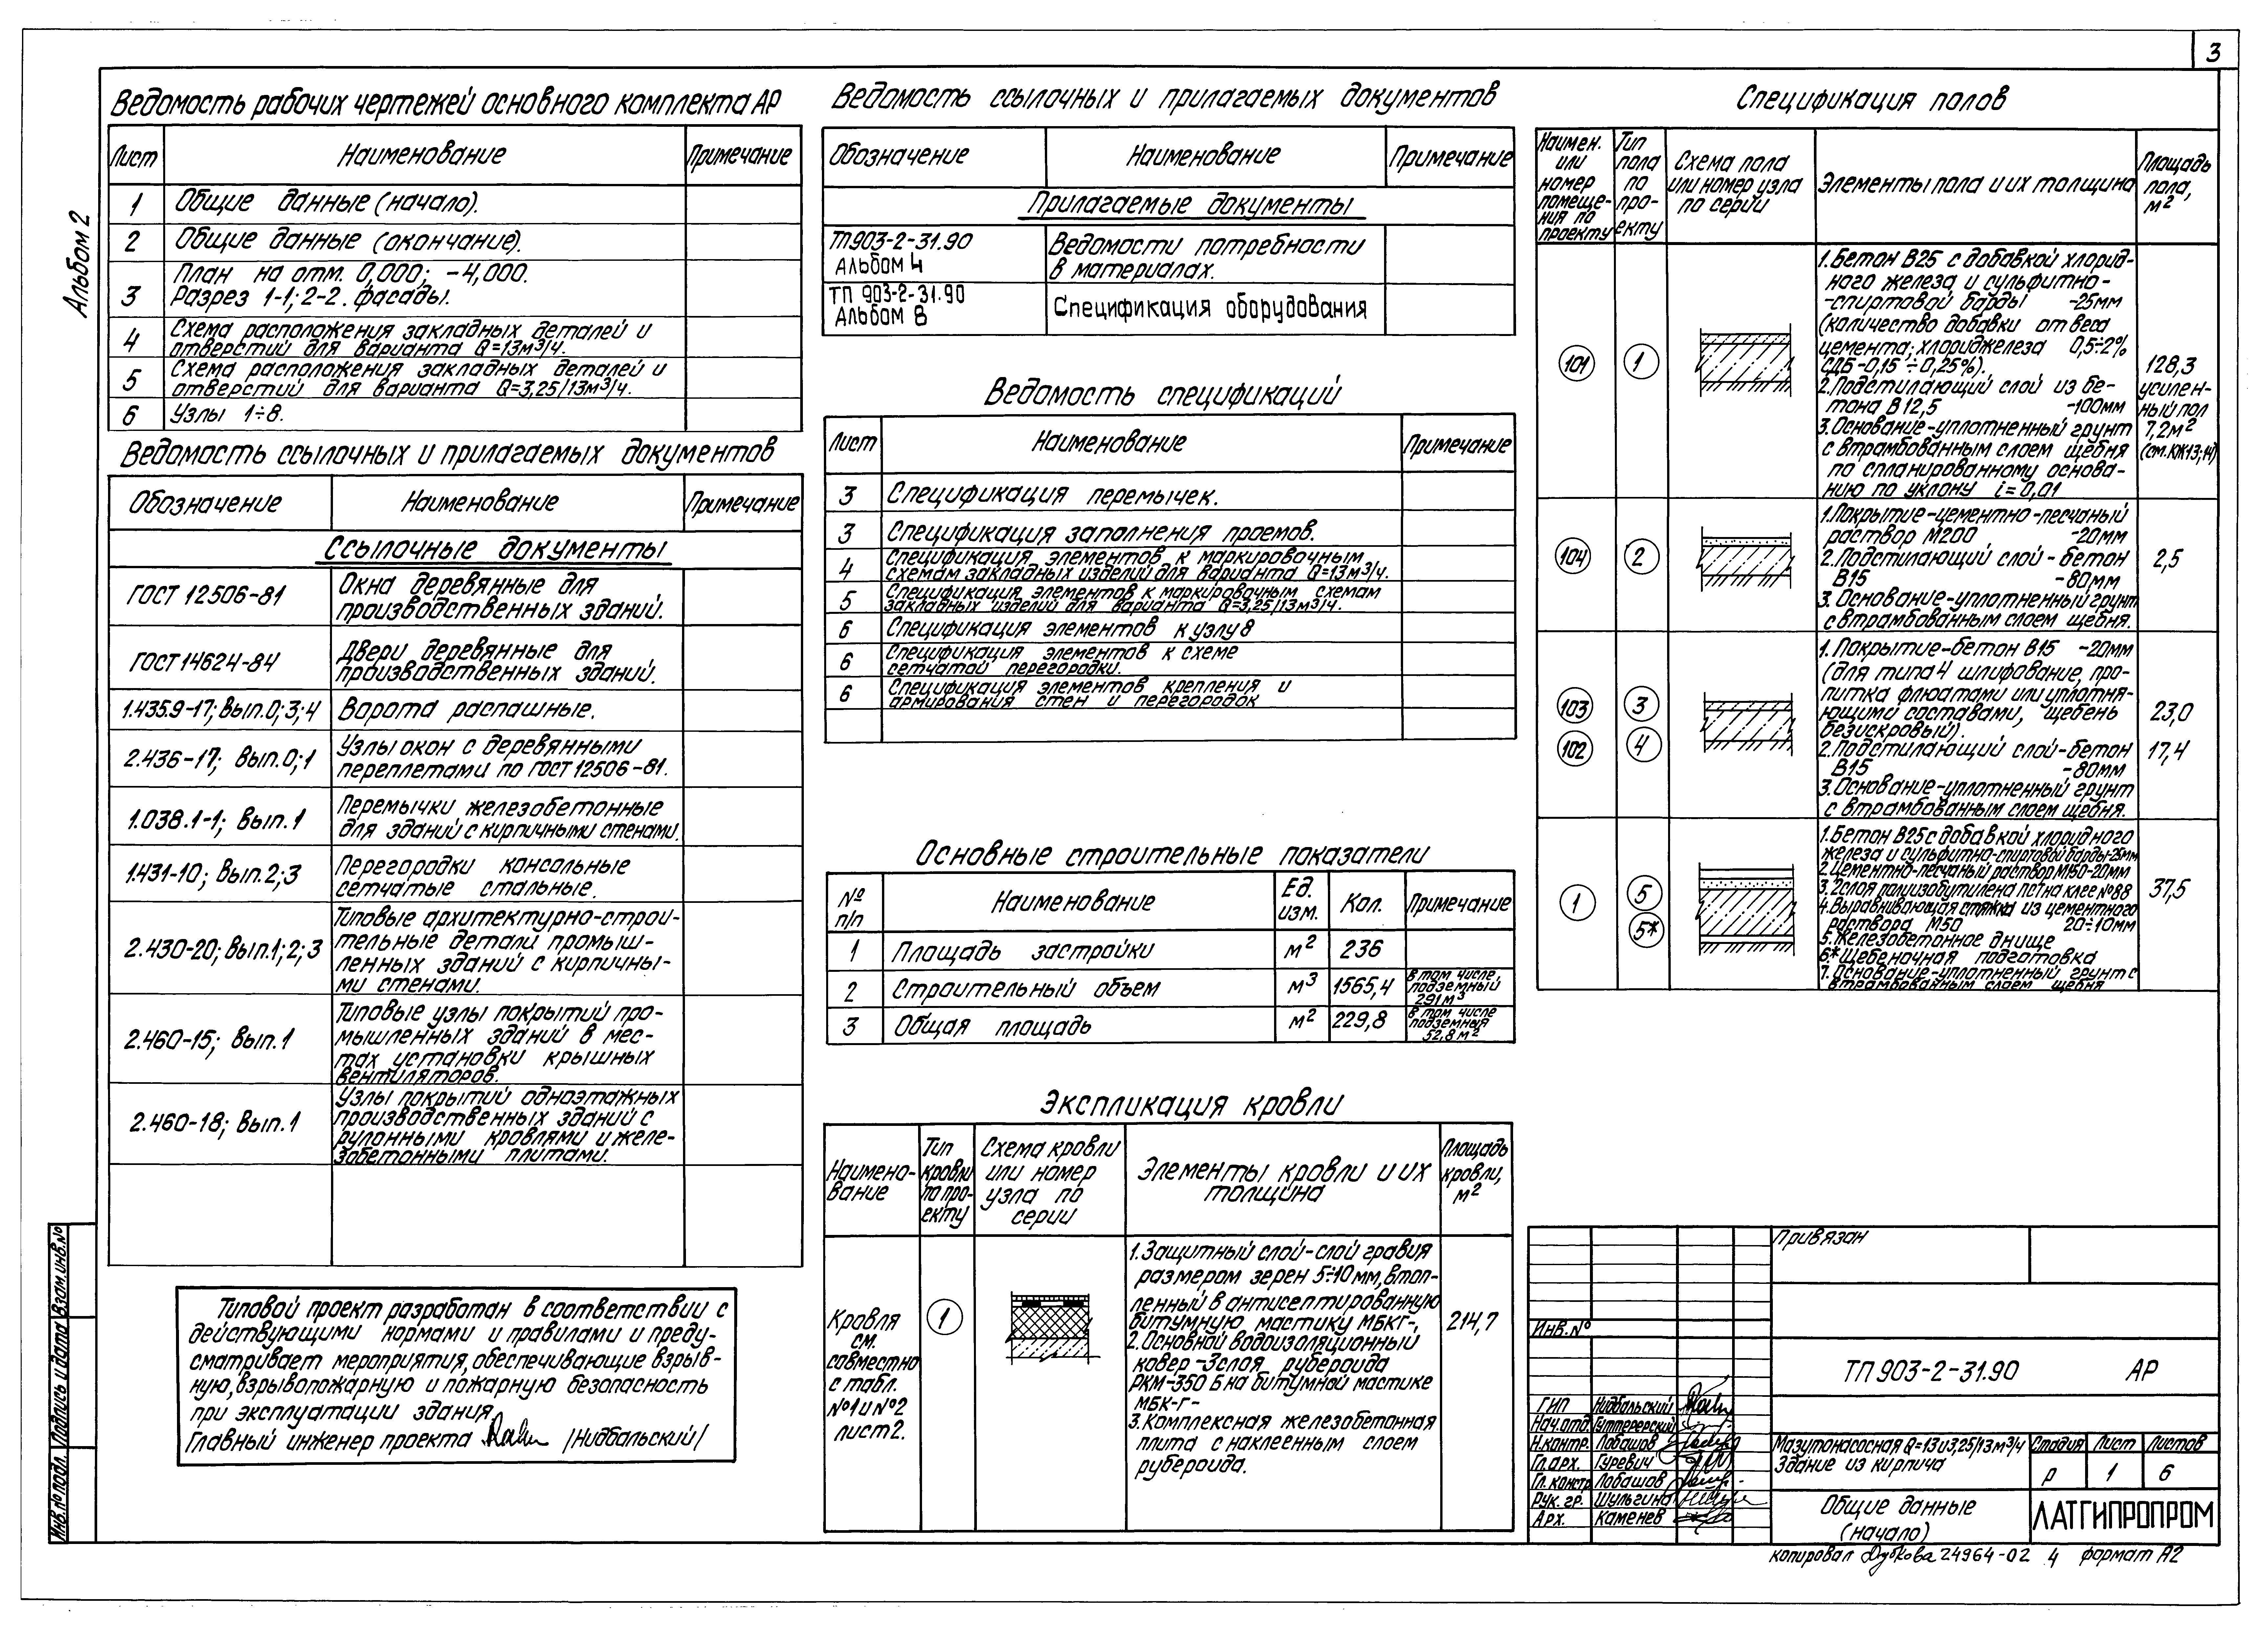 3
Альбом 2
Ведомость рабочих чертежей основного комплекта АР
Лист Наименование Примечание
1 Общие данные (начало).
2 Общие данные (окончание).
3 План на отм. 0,000; -4,000.
Разрез 1-1; 2-2. Фасады.
4 Схема расположения закладных деталей и
отверстий для варианта Q=13м³/ч.
5 Схема расположения закладных деталей и
отверстий для варианта Q=3,25/13м³/ч.
6 Узлы 1÷8.
Ведомость ссылочных и прилагаемых документов
Обозначение Наименование Примечание
Ссылочные документы
ГОСТ 12506-81 Окна деревянные для
производственных зданий.
ГОСТ 14624-84 Двери деревянные для
производственных зданий.
1.435.9-17; Вып.0;3;4 Ворота распашные.
2.436-17; Вып.0;1 Узлы окон с деревянными
переплетами по ГОСТ 12506-81.
1.038.1-1; Вып.1 Перемычки железобетонные
для зданий с кирпичными стенами.
1.431-10; Вып.2;3 Перегородки консольные
сетчатые стальные.
2.430-20; Вып.1;2;3 Типовые архитектурно-строи-
тельные детали промыш-
ленных зданий с кирпичны-
ми стенами.
2.460-15; Вып.1 Типовые узлы покрытий про-
мышленных зданий в мес-
тах установки крышных
вентиляторов.
2.460-18; Вып.1 Узлы покрытий одноэтажных
производственных зданий с
рулонными кровлями и желе-
зобетонными плитами.
Типовой проект разработан в соответствии с
действующими нормами и правилами и преду-
сматривает мероприятия, обеспечивающие взрыв-
ную, взрывопожарную и пожарную безопасность
при эксплуатации здания.
Главный инженер проекта /Нидбальский/
Ведомость ссылочных и прилагаемых документов
Обозначение Наименование Примечание
Прилагаемые документы
ТП903-2-31.90
Альбом 4
Ведомости потребности
в материалах.
ТП 903-2-31.90
Альбом 8
Спецификация оборудования
Ведомость спецификаций
Лист Наименование Примечание
3 Спецификация перемычек.
3 Спецификация заполнения проемов.
4 Спецификация элементов к маркировочным
схемам закладных изделий для варианта Q=13м³/ч.
5 Спецификация элементов к маркировочным схемам
закладных изделий для варианта Q=3,25/13м³/ч.
6 Спецификация элементов к узлу 8
6 Спецификация элементов к схеме
сетчатой перегородки.
6 Спецификация элементов крепления и
армирования стен и перегородок
Основные строительные показатели
№ п/п Наименование Ед. изм. Кол. Примечание
1 Площадь застройки м² 236
2 Строительный объем м³ 1565,4 в том числе, подземный 291м³
3 Общая площадь м² 229,8 в том числе подземная 52,8м²
Экспликация кровли
Наимено-
вание
Тип
кровли
по про-
екту
Схема кровли
или номер
узла по
серии
Элементы кровли и их
толщина
Площадь
кровли,
м²
Кровля
см.
совместно
с табл.
№1 и №2
лист 2.
1
1. Защитный слой-слой гравия
размером зерен 5÷10 мм, втоп-
ленный в антисептированную
битумную мастику МБКГ-,
2. Основной водоизоляционный
ковер -3слоя рубероида
РКМ-350 Б на битумной мастике
МБК-Г-
3. Комплексная железобетонная
плита с наклеенным слоем
рубероида.
214,7
Спецификация полов
Наимен.
или
номер
помеще-
ния по
проекту
Тип
пола
по
про-
екту
Схема пола
или номер узла
по серии
Элементы пола и их толщина
Площадь
пола,
м²
101 1
1. Бетон В25 с добавкой хлорид-
ного железа и сульфитно-
-спиртовой барды -25мм
(количество добавки от веса
цемента; хлориджелеза 0,5÷2%
СДБ-0,15÷0,25%).
2. Подстилающий слой из бе-
тона В 12,5 -100мм
3. Основание-уплотненный грунт
с втрамбованным слоем щебня
по спланированному основа-
нию по уклону i=0,01
128,3
усилен-
ный пол
7,2м²
(см.КЖ13;14)
104 2
1. Покрытие-цементно-песчаный
раствор М200 -20мм
2. Подстилающий слой-бетон
В15 -80мм
3. Основание-уплотненный грунт
с втрамбованным слоем щебня.
2,5
103 3
102 4
1. Покрытие-бетон В15 -20мм
(для типа 4 шлифование, про-
питка флюатами или уплотня-
ющими составами, щебень
безискровый).
2. Подстилающий слой-бетон
В15 -80мм
3. Основание-уплотненный грунт
с втрамбованным слоем щебня.
23,0
17,4
1 5
5*
1. Бетон В25 с добавкой хлоридного
железа и сульфитно-спиртовой барды-25мм
2. Цементно-песчаный раствор М150-20мм
3. 2слоя полиизобутилена ПСГ на клее №88
4. Выравнивающая стяжка из цементного
раствора М50 20÷10мм
5. Железобетонное днище
6.* Щебеночная подготовка
7. Основание-уплотненный грунт с
втрамбованным слоем щебня
37,5
Привязан
Инв. №
ТП 903-2-31.90 АР
ГИП Нидбальский
Нач.отд.
Н.контр. Лобашов
Гл.арх. Гуревич
Гл. констр Лобашов
Рук. гр. Шульгина
Арх. Каменев
Мазутонасосная Q=13 и 3,25/13м³/ч
Здание из кирпича
Стадия Лист Листов
Р 1 6
Общие данные
(начало)
ЛАТГИПРОПРОМ
копировал Дубкова 24964-02 4 формат А2
Инв.№ подл. Подпись и дата Взам.инв.№